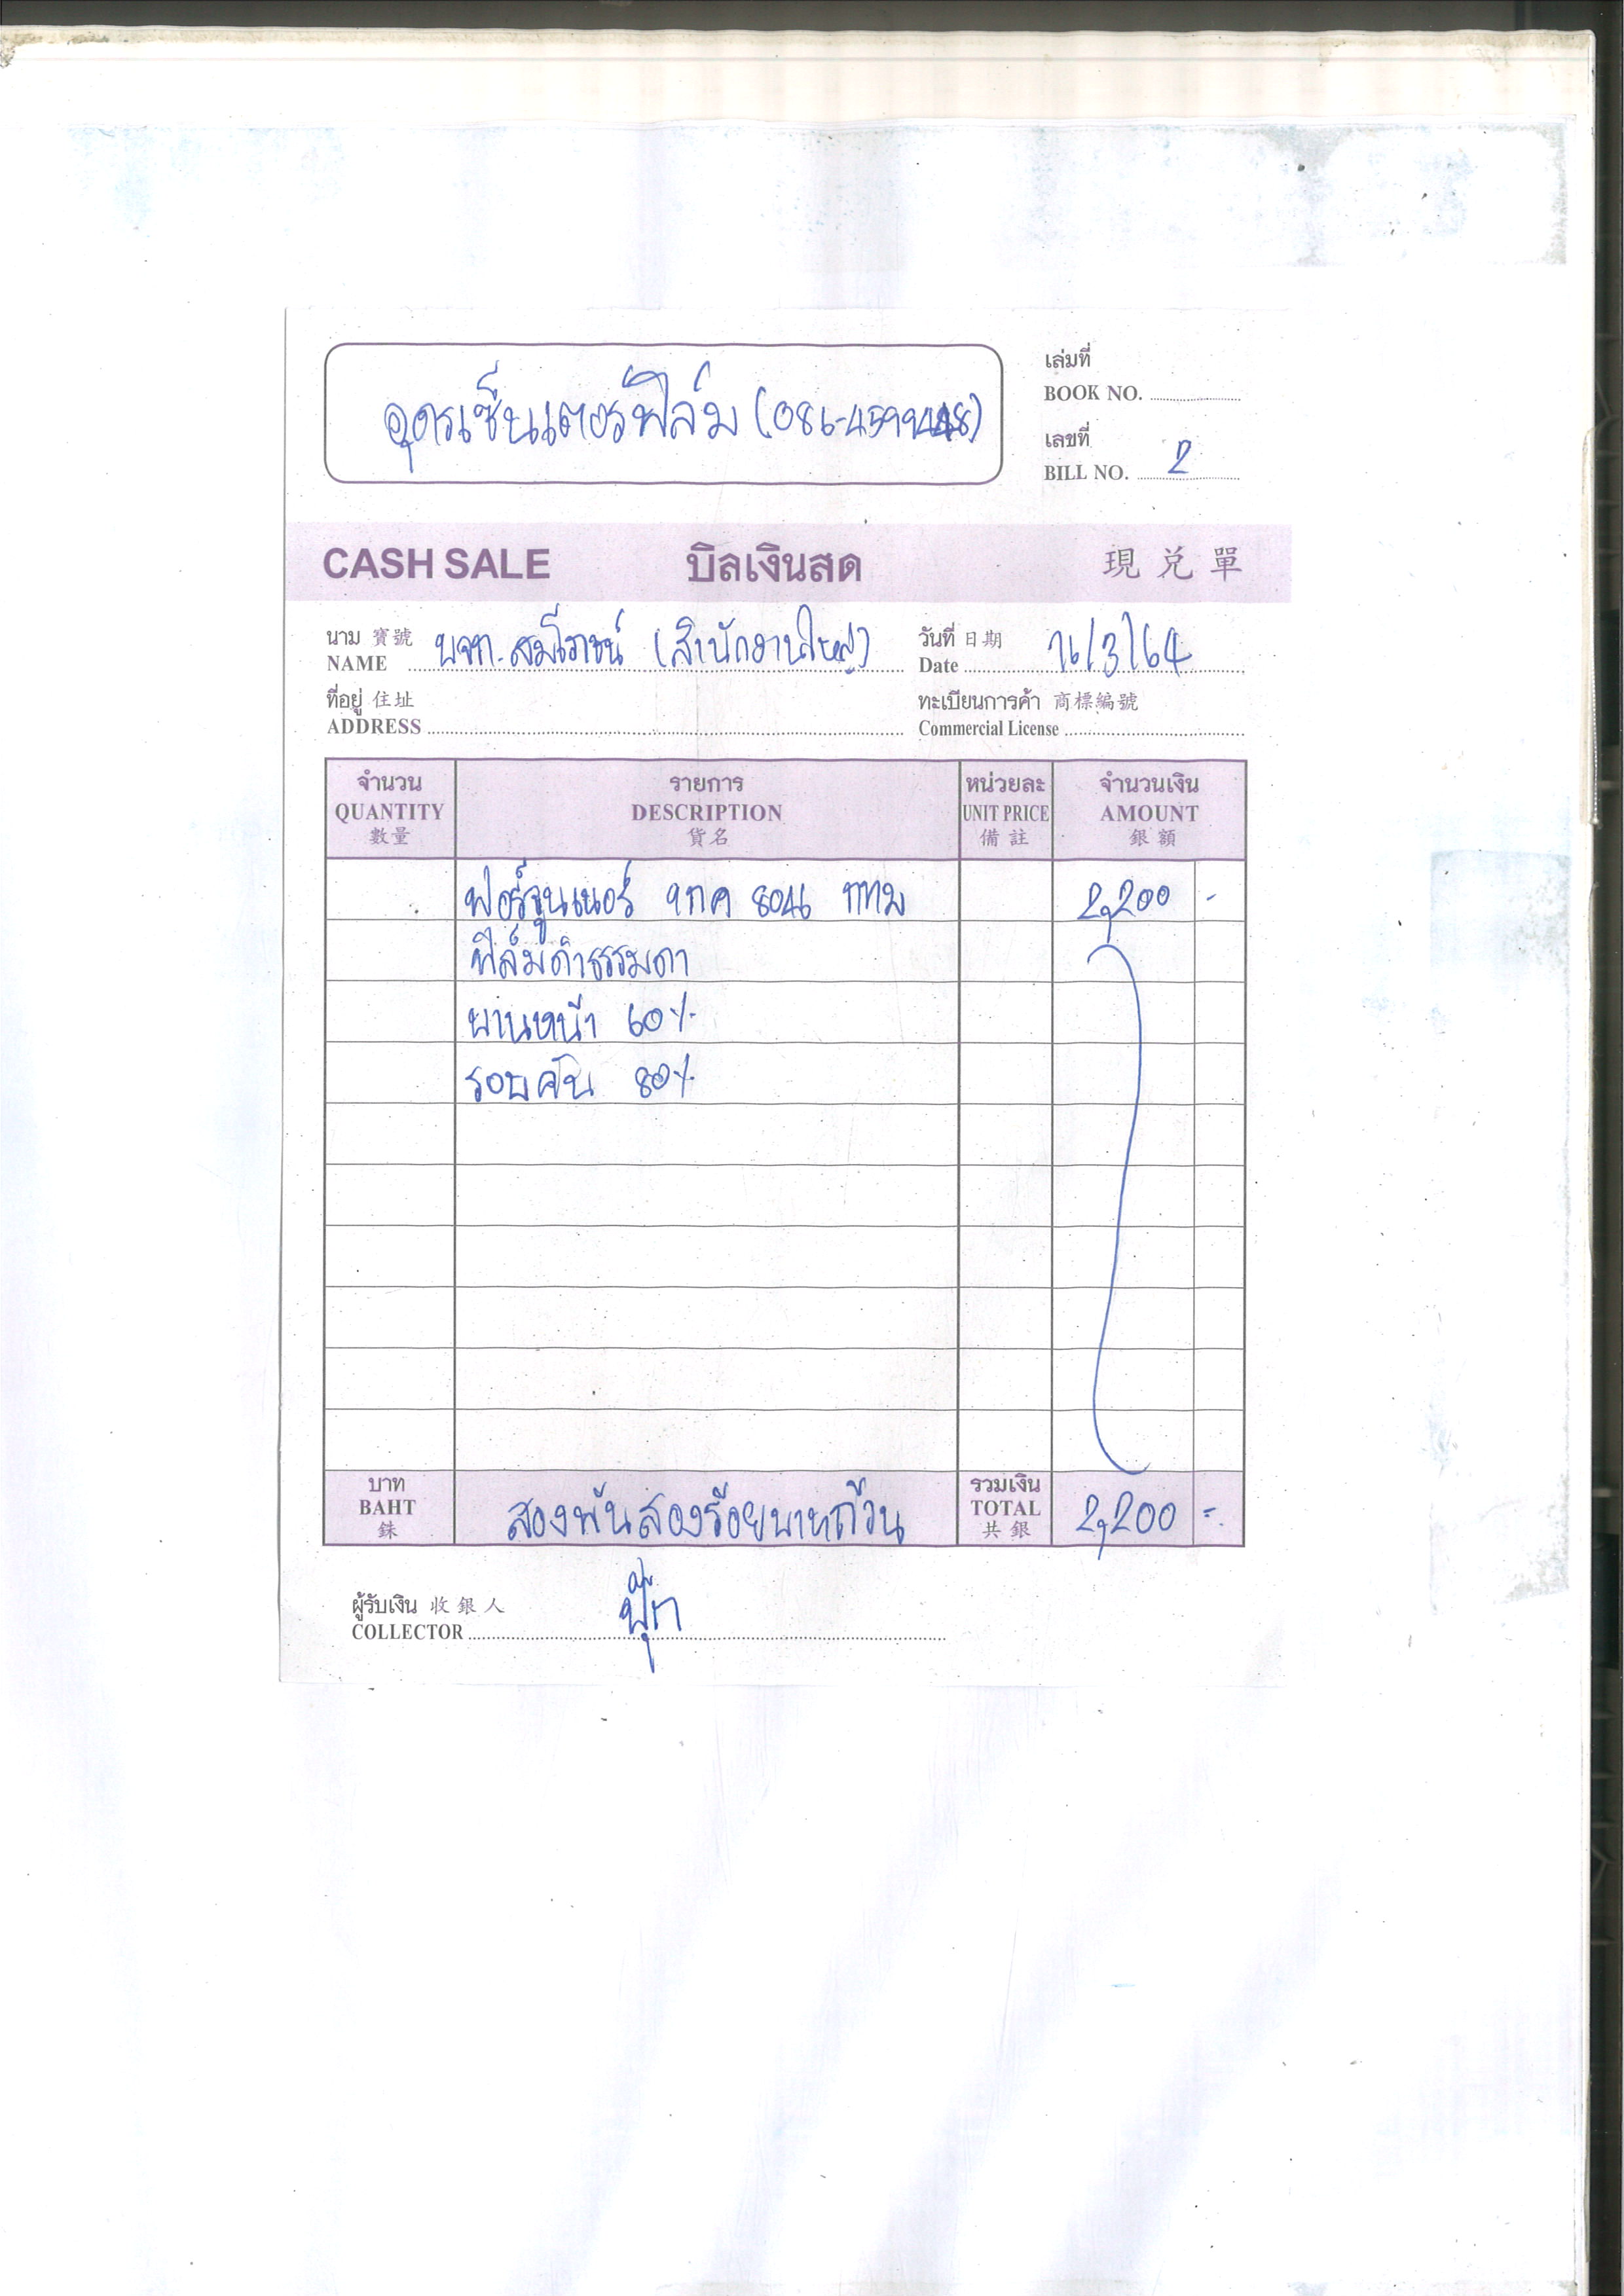 อุดรเซ็นเตอร์ฟิล์ม (086-4599448)
เล่มที่
BOOK NO.
เลขที่
BILL NO. 2
CASH SALE บิลเงินสด 現兌單
นาม 寶號 NAME บจก. สมโภชน์ (สำนักงานใหญ่)
วันที่ 日期 Date 16/3/64
ที่อยู่ 住址 ADDRESS
ทะเบียนการค้า 商標編號 Commercial License
จำนวน รายการ หน่วยละ จำนวนเงิน
QUANTITY DESCRIPTION UNIT PRICE AMOUNT
數量 貨名 備註 銀額
ฟอร์จูนเนอร์ 1กค 8046 กทม 2,200 -
ฟิล์มดำธรรมดา
บานหน้า 60%
รอบคัน 80%
บาท BAHT 銖 สองพันสองร้อยบาทถ้วน รวมเงิน TOTAL 共銀 2,200 =
ผู้รับเงิน 收銀人
COLLECTOR